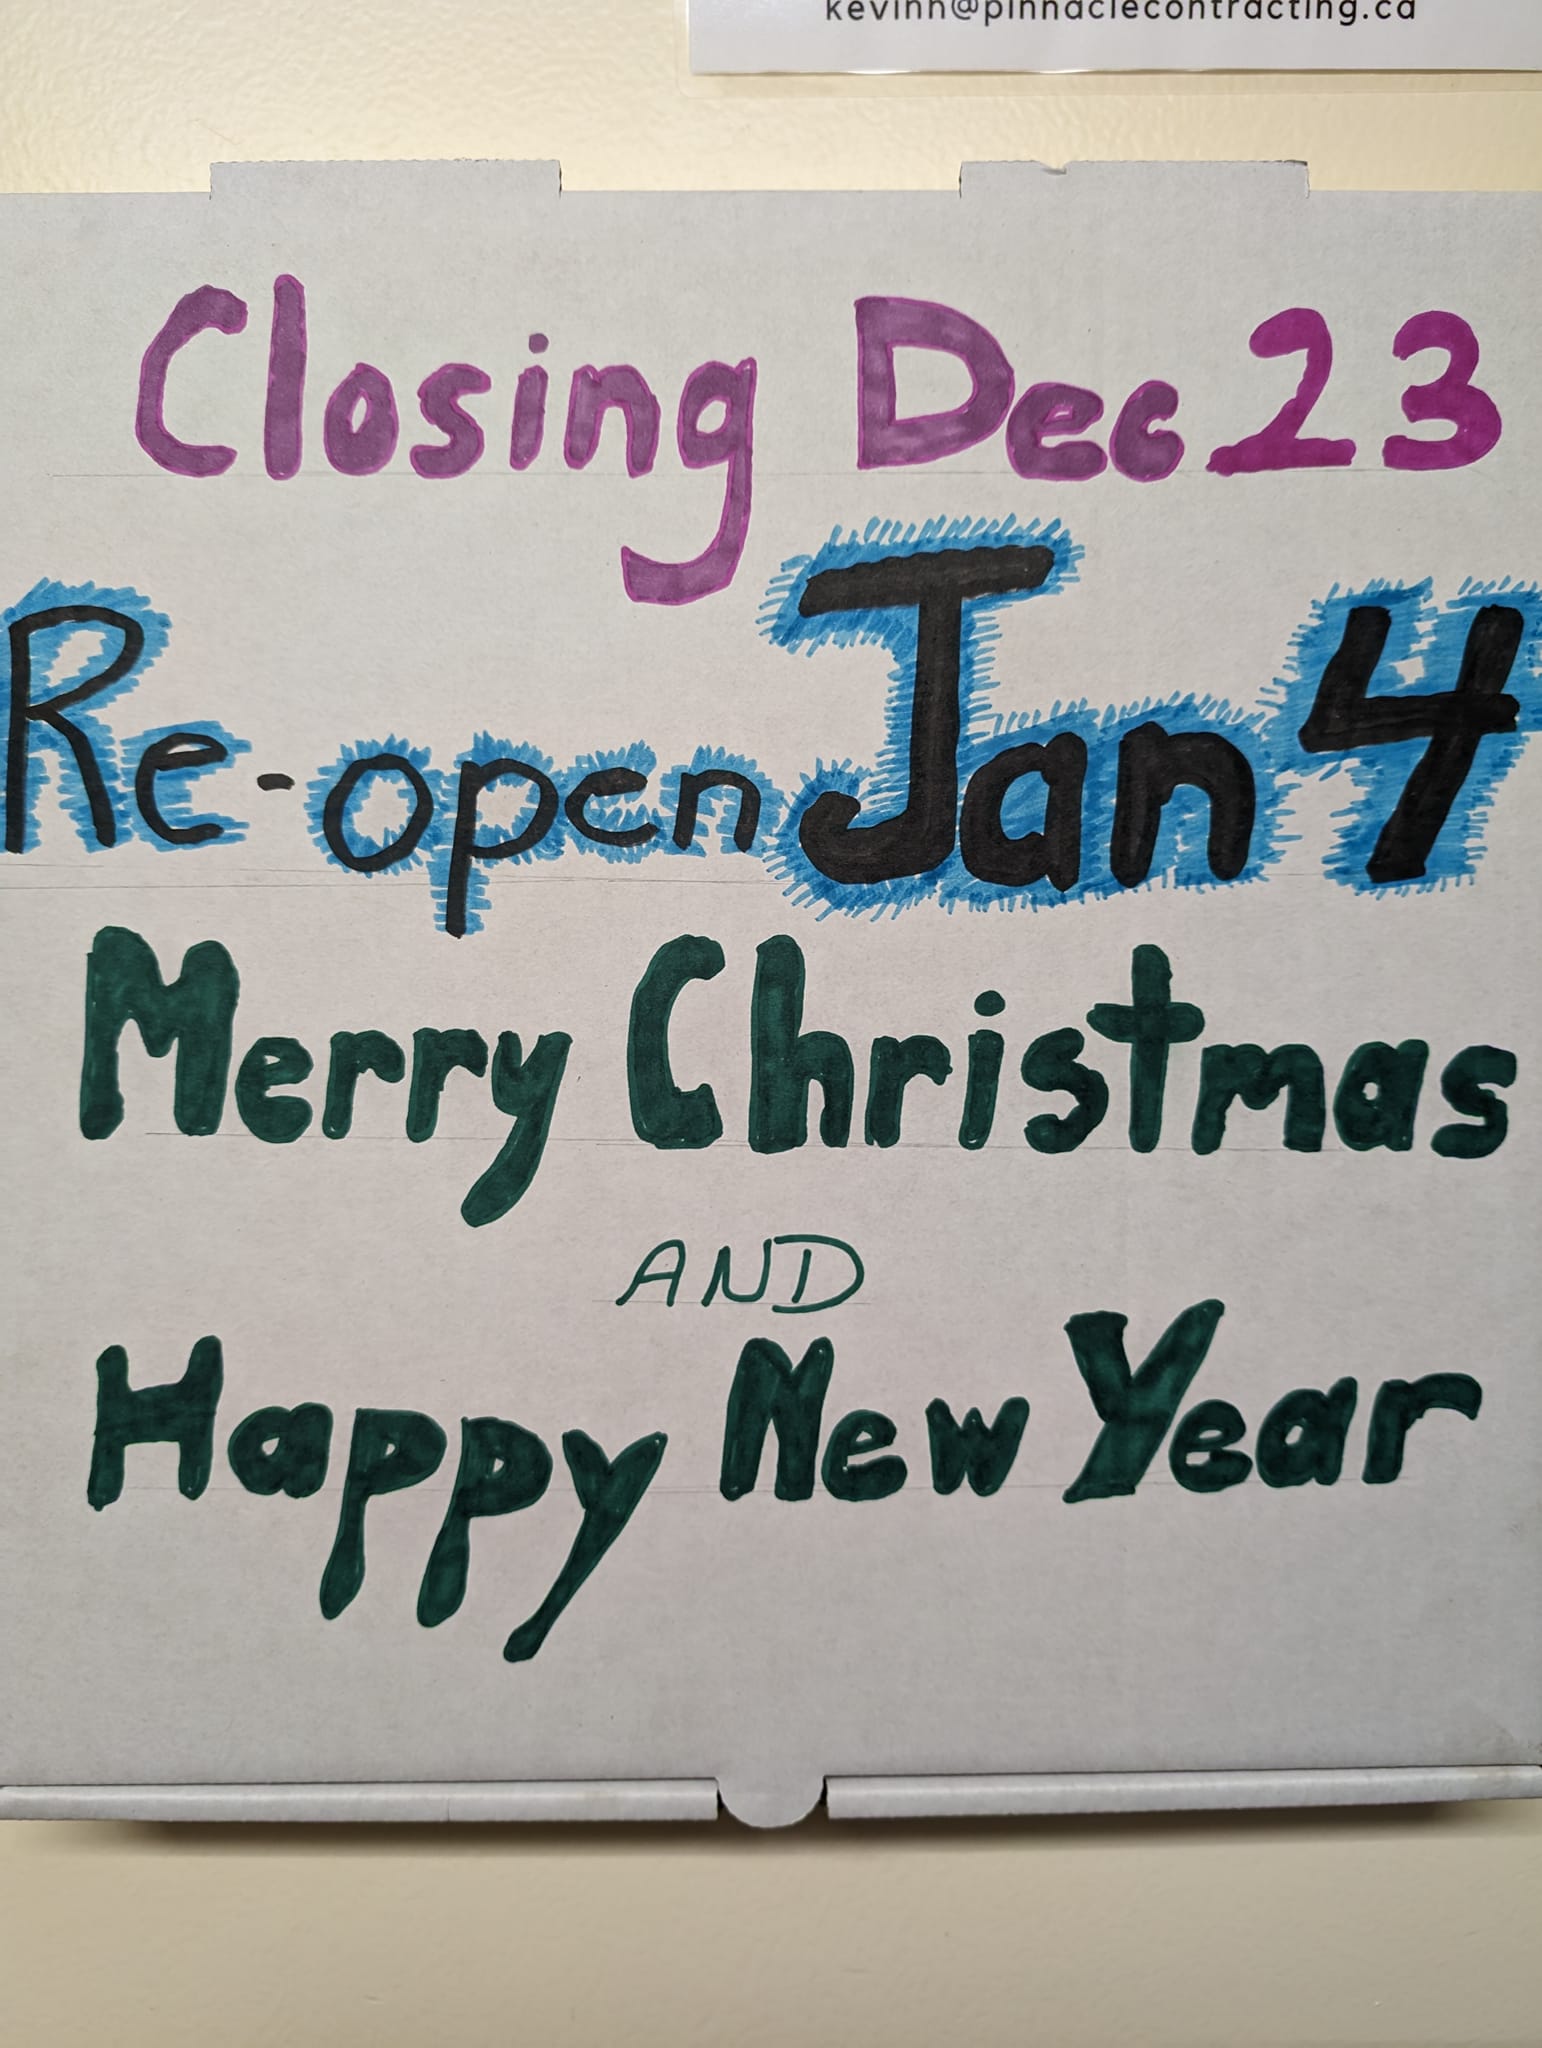 kevinh@pinnaclecontracting.ca
Closing Dec 23
Re-open Jan 4
Merry Christmas
AND
Happy New Year